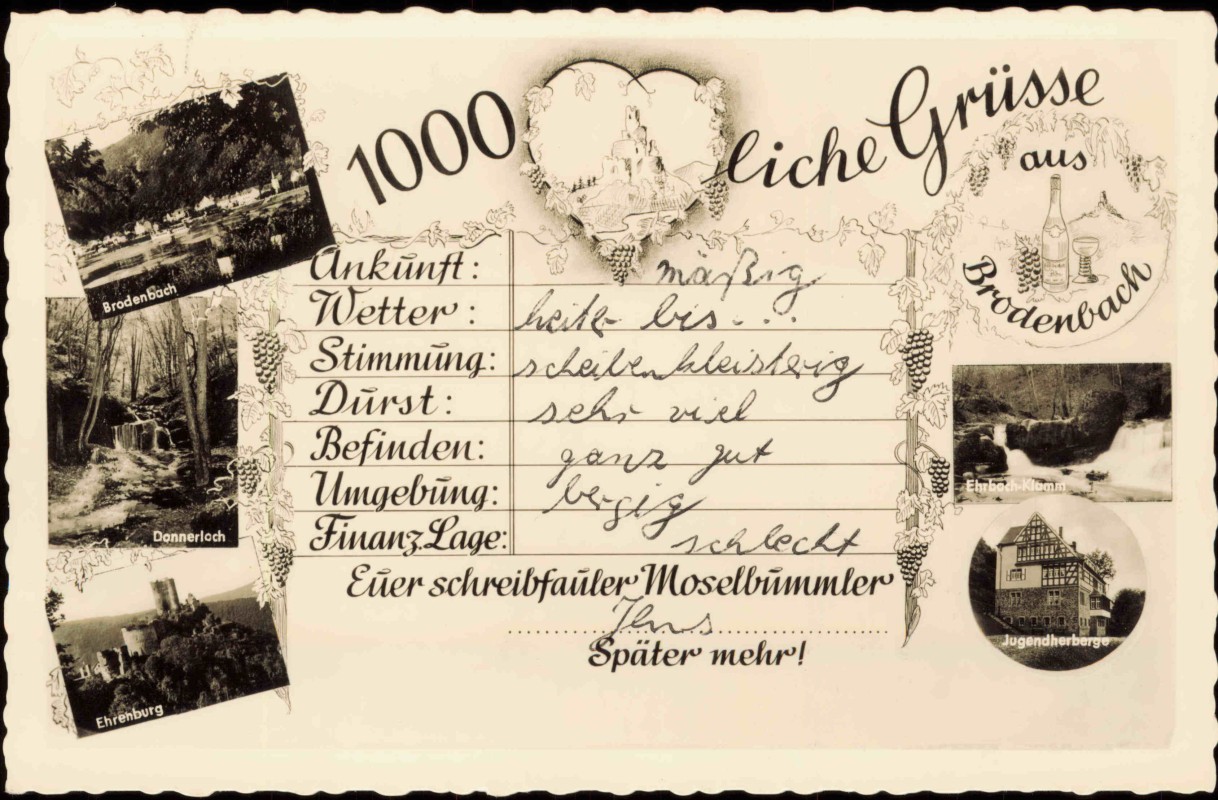 1000 liche Grüsse
aus
Brodenbach
Ankunft: mäßig
Wetter: heiter bis...
Stimmung: scheibenkleisterig
Durst: sehr viel
Befinden: ganz gut
Umgebung: bergig
Finanz.Lage: schlecht
Euer schreibfauler Moselbummler
Später mehr!
Brodenbach
Donnerloch
Ehrenburg
Ehrbach-Klamm
Jugendherberge